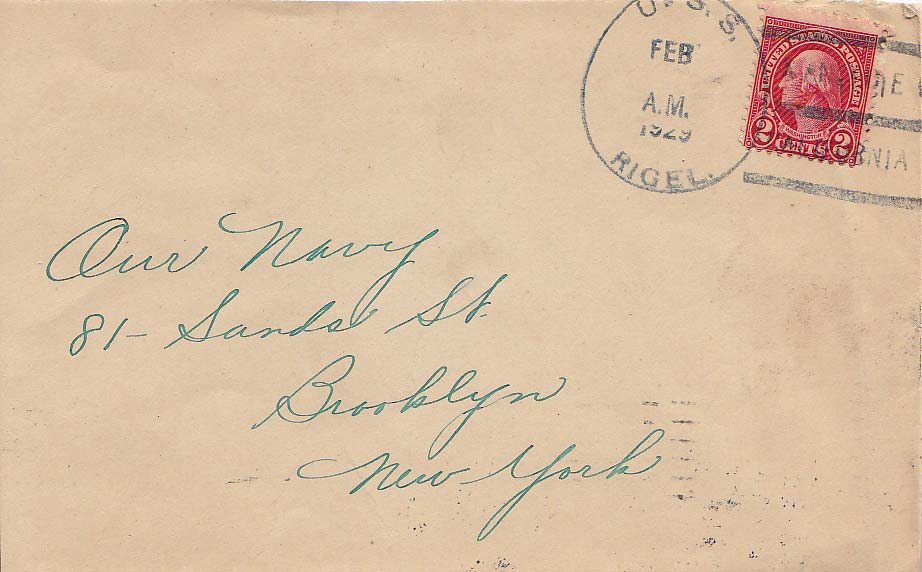 U.S.S.
FEB
A.M.
1929
RIGEL.
UNITED STATES POSTAGE
WASHINGTON
2 CENTS 2
Our Navy
81- Sands St.
Brooklyn
New York